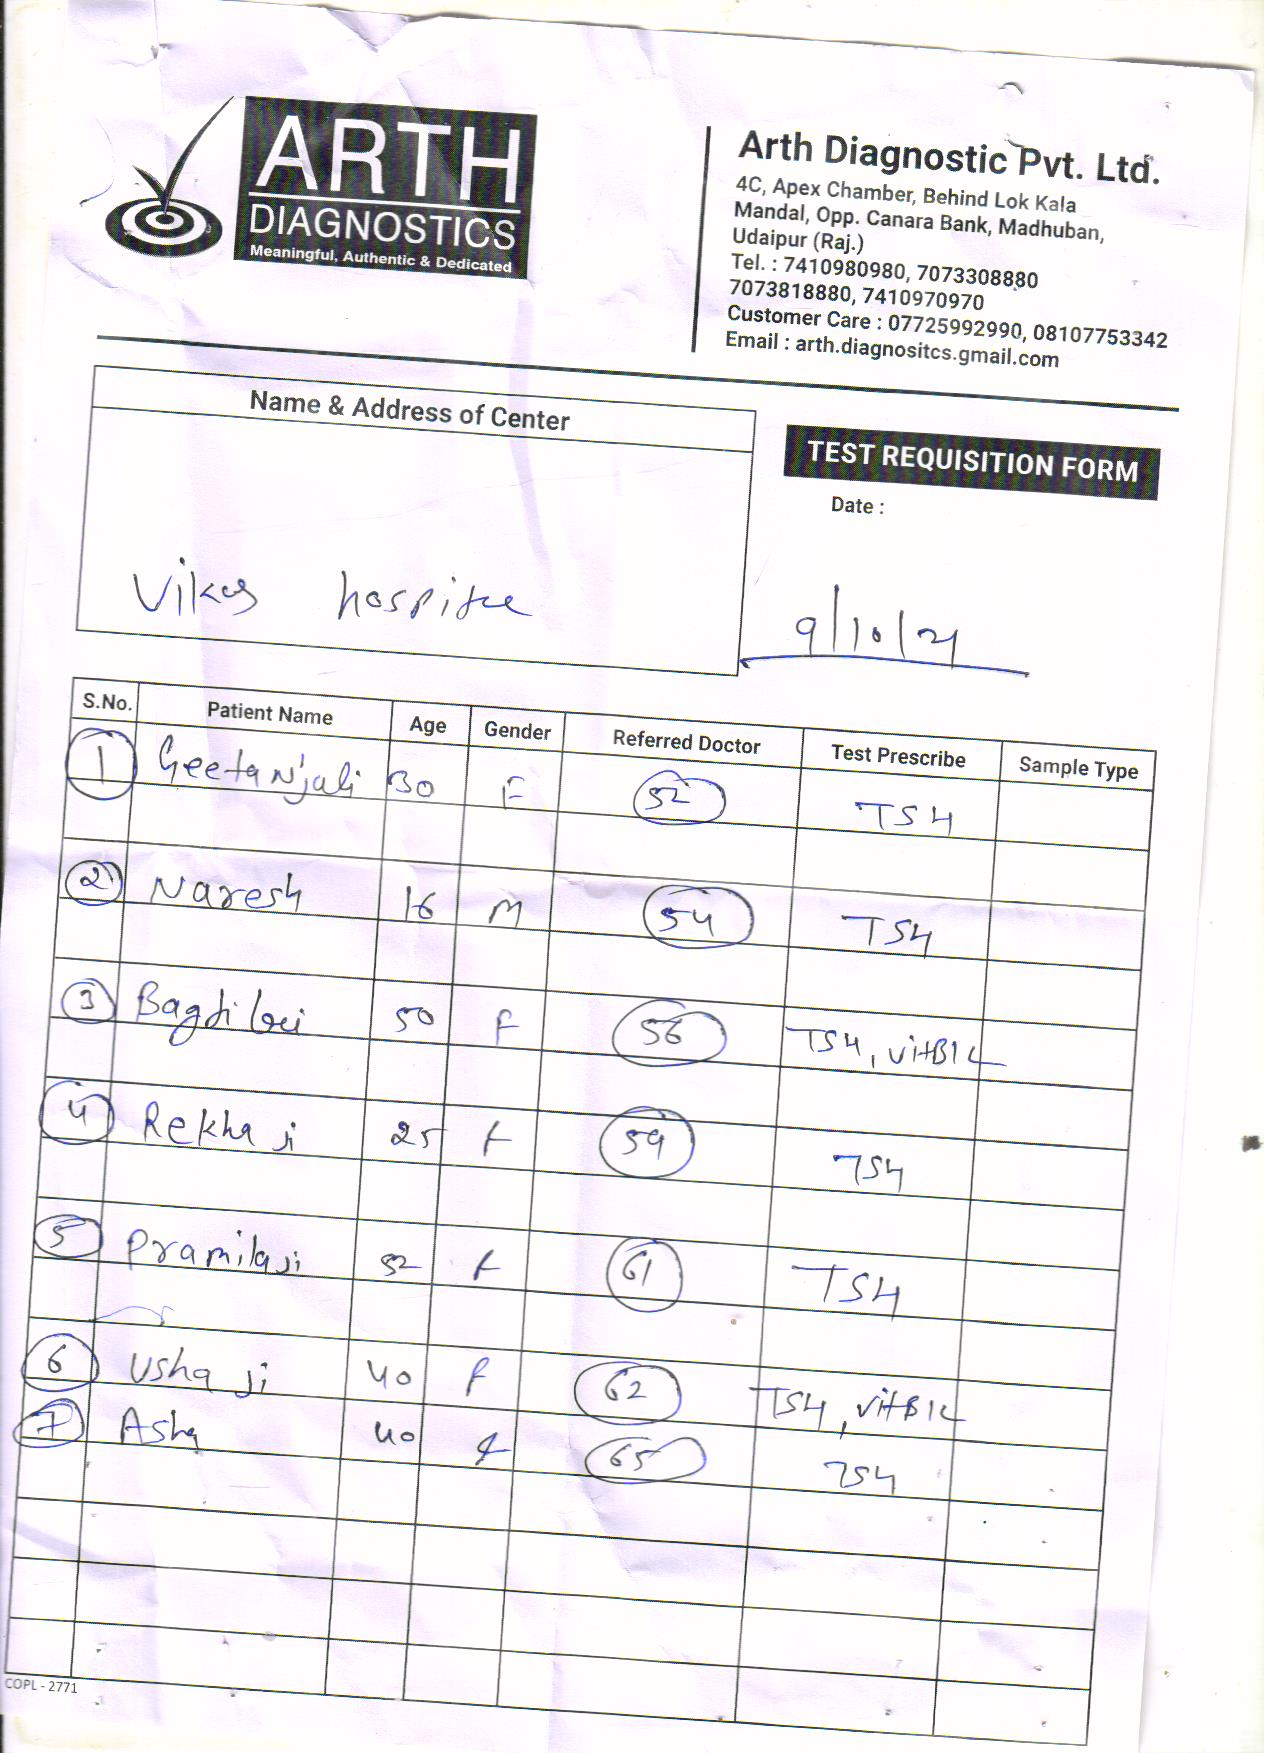 ARTH
DIAGNOSTICS
Meaningful, Authentic & Dedicated
Arth Diagnostic Pvt. Ltd.
4C, Apex Chamber, Behind Lok Kala
Mandal, Opp. Canara Bank, Madhuban,
Udaipur (Raj.)
Tel. : 7410980980, 7073308880
7073818880, 7410970970
Customer Care : 07725992990, 08107753342
Email : arth.diagnositcs.gmail.com
Name & Address of Center
Vikas hospital
TEST REQUISITION FORM
Date :
9/10/21
S.No. Patient Name Age Gender Referred Doctor Test Prescribe Sample Type
1 Geetanjali 30 F 52 TS4
2 Naresh 16 M 54 TS4
3 Bagdi bai 50 F 56 TS4, vitB12
4 Rekha ji 25 F 59 TS4
5 Pramila ji 52 F 61 TS4
6 Usha ji 40 F 62 TS4, vitB12
7 Asha 40 F 65 TS4
COPL - 2771